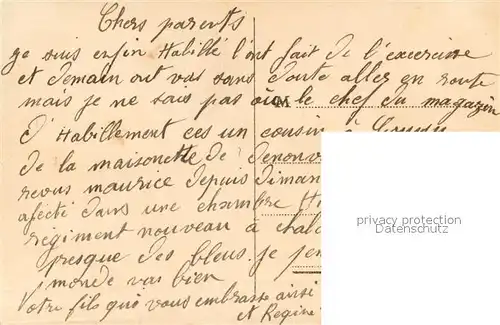 Chers parents
je suis enfin Habillé l'ont fait de l'excercisse
et demain ont vas sans doute aller en route
mais je ne sais pas où le chef du magazin
d'Habillement ces un cousin à
de la maisonette de
revus maurice depuis diman
afecté dans une chambre
régiment nouveau à chal
presque des bleus je
monde vas bien
Votre fils qui vous embrasse ainsi
et Regine
privacy protection
Datenschutz